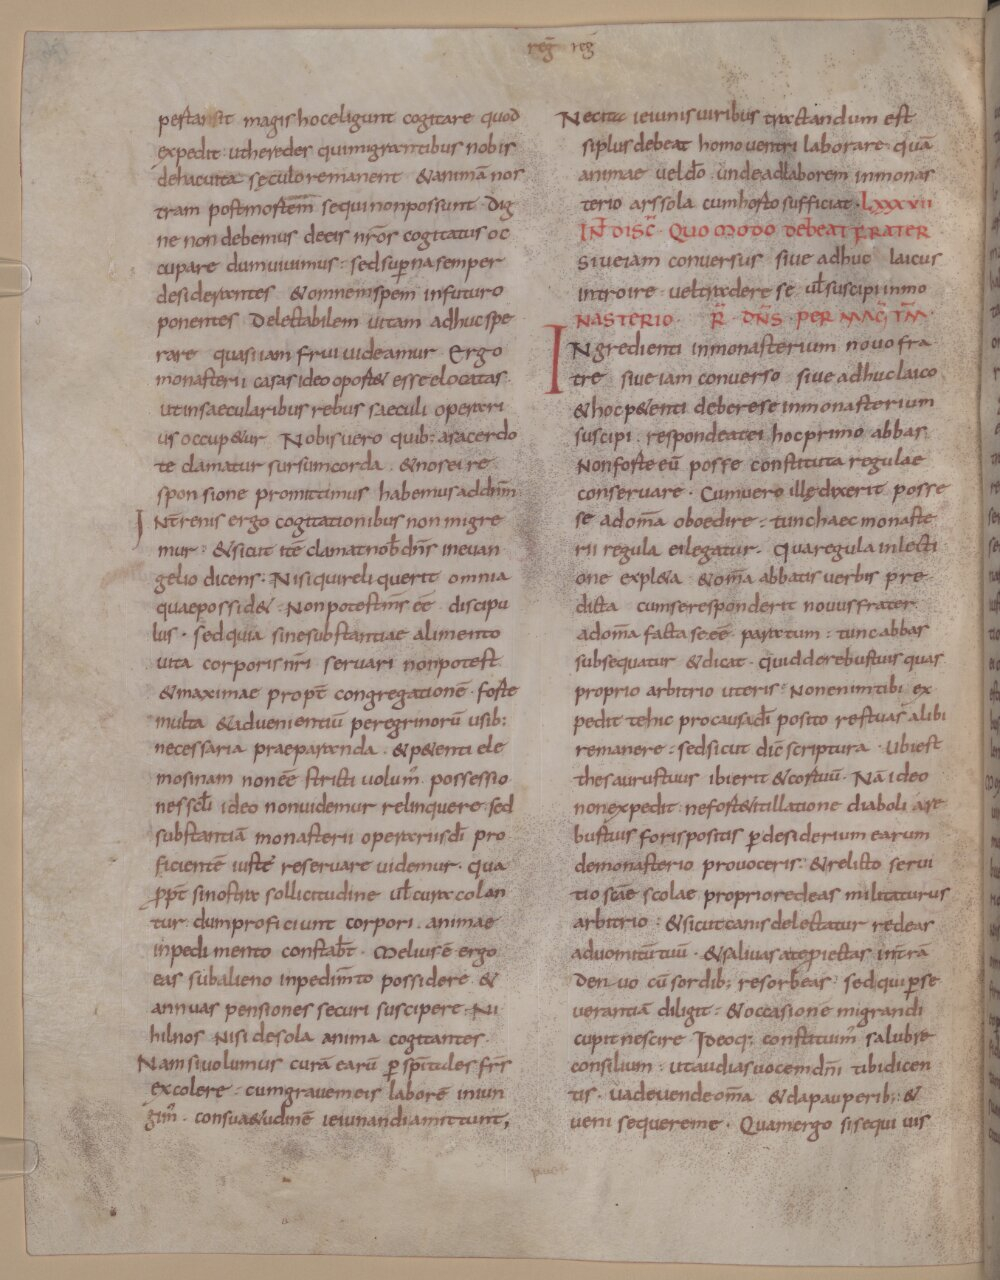 reḡ reḡ
pestansit magis hoceligunt cogitare quod
expedit utheredes quimigrantibus nobis
dehacuita sęculoremanent &animā nos
tram postmostem̄ sequinonpossunt Dig
ne non debemus deeis nr̄os cogitatus oc
cupare dumuiuimus· sedsup̄nasemper
desiderantes &omnemspem infuturo
ponentes Delectabilem uitam adhucspe
rare quasiiam frui uideamur Ergo
monasterii casas ideo oport& esse elocatas
utinsaecularibus rebus saeculi operari
us occup&ur Nobisuero quib: asacerdo
te clamatur sursumcorda &nosei re
sponsione promittimus habemusaddnm̄
INter̄renis ergo cogitationibus non migre
mur· &sicut itē clamatnob̄ dn̄s ineuan
gelio dicens· Nisiquireliquerit omnia
quaepossid& Nonpotestm̄s eē discipu
lus· sedquia sinesubstantiae alimento
uita corporisnr̄i seruari nonpotest
&maximae propt̄ congregationē· foste
multa &aduenientiū peregrinorū usib:
necessaria praeparanda· &p&enti ele
mosinam noneē stricti uolum̄ possessio
nesscl̄i ideo nonuidemur relinquere sed
substantiā monasterii operariisdī pro
ficientē iuste reseruare uidemur· qua
p̄pt̄ sinostra sollicitudine ul̄ cura colan
tur dumproficiunt corpori animae
inpedimento constab̄t· Meliusē ergo
eas subalieno inpedim̄to possidere &
annuas pensiones securi suscipere Ni
hilnos nisi desola anima cogitantes
Nam siuolumus curā earū p̄ sp̄itales fr̄s
excolere· cumgrauemeis laborē iniun
gim̄· consua&udinē ieiunandiamittunt,
Necita ieiunisuiribus tractandum est
siplusdebeat homo uentri laborare quā
animae ueldō· undeadlaborem inmonas
terio arssola cumhosto sufficiat· LXXXVII
IN̄ DISC̄· QUOMODO DEBEAT FRATER
siueiam conuersus siue adhuc laicus
introire ueltradere se ul̄ suscipi inmo
NASTERIO· R̄ DN̄S· PER MAḠ TM̄·
INgredienti inmonasterium nouo fra
tre siueiam conuerso siue adhuclaico
&hocp&enti deberese inmonasterium
suscipi· respondeatei hocprimo abbas
Nonfoste eū posse constituta regulae
conseruare· Cumuero illędixerit posse
se adom̄a oboedire· tunchaec monaste
rii regula eilegatur· Quaregula inlecti
one expl&a &om̄a abbatis uerbis pre
dicta cumseresponderit nouusfrater
adom̄a facta seeē paratum: tuncabbas
subsequatur &dicat· quidderebustuis quas
proprio arbitrio uteris· Nonenimtibi ex
pedit tehic procausadī posito restuas alibi
remanere· sedsicut dic̄ scriptura· Ubiest
thesaurustuus ibierit &cortuū· Nā ideo
nonexpedit nefost&itillatione diaboli are
bustuis forispositis p̄desiderium earum
demonasterio prouoceris· &relicto serui
tio scāe scolae proprioredeas militaturus
arbitrio· &sicutcanis delectatur redeas
aduomitūtuū· &saliuas ateiectas int̄rā
Denuo cū sordib: resorbeas· sedquip̄se
uerantiā diligit· &occasionē migrandi
cupitnescire Ideoq: constituim̄ salubre
consilium· utaudiasuocemdn̄i tibidicen
tis· uadeuendeom̄a &dapauperib: &
ueni sequereme· Quamergo sisequi uis